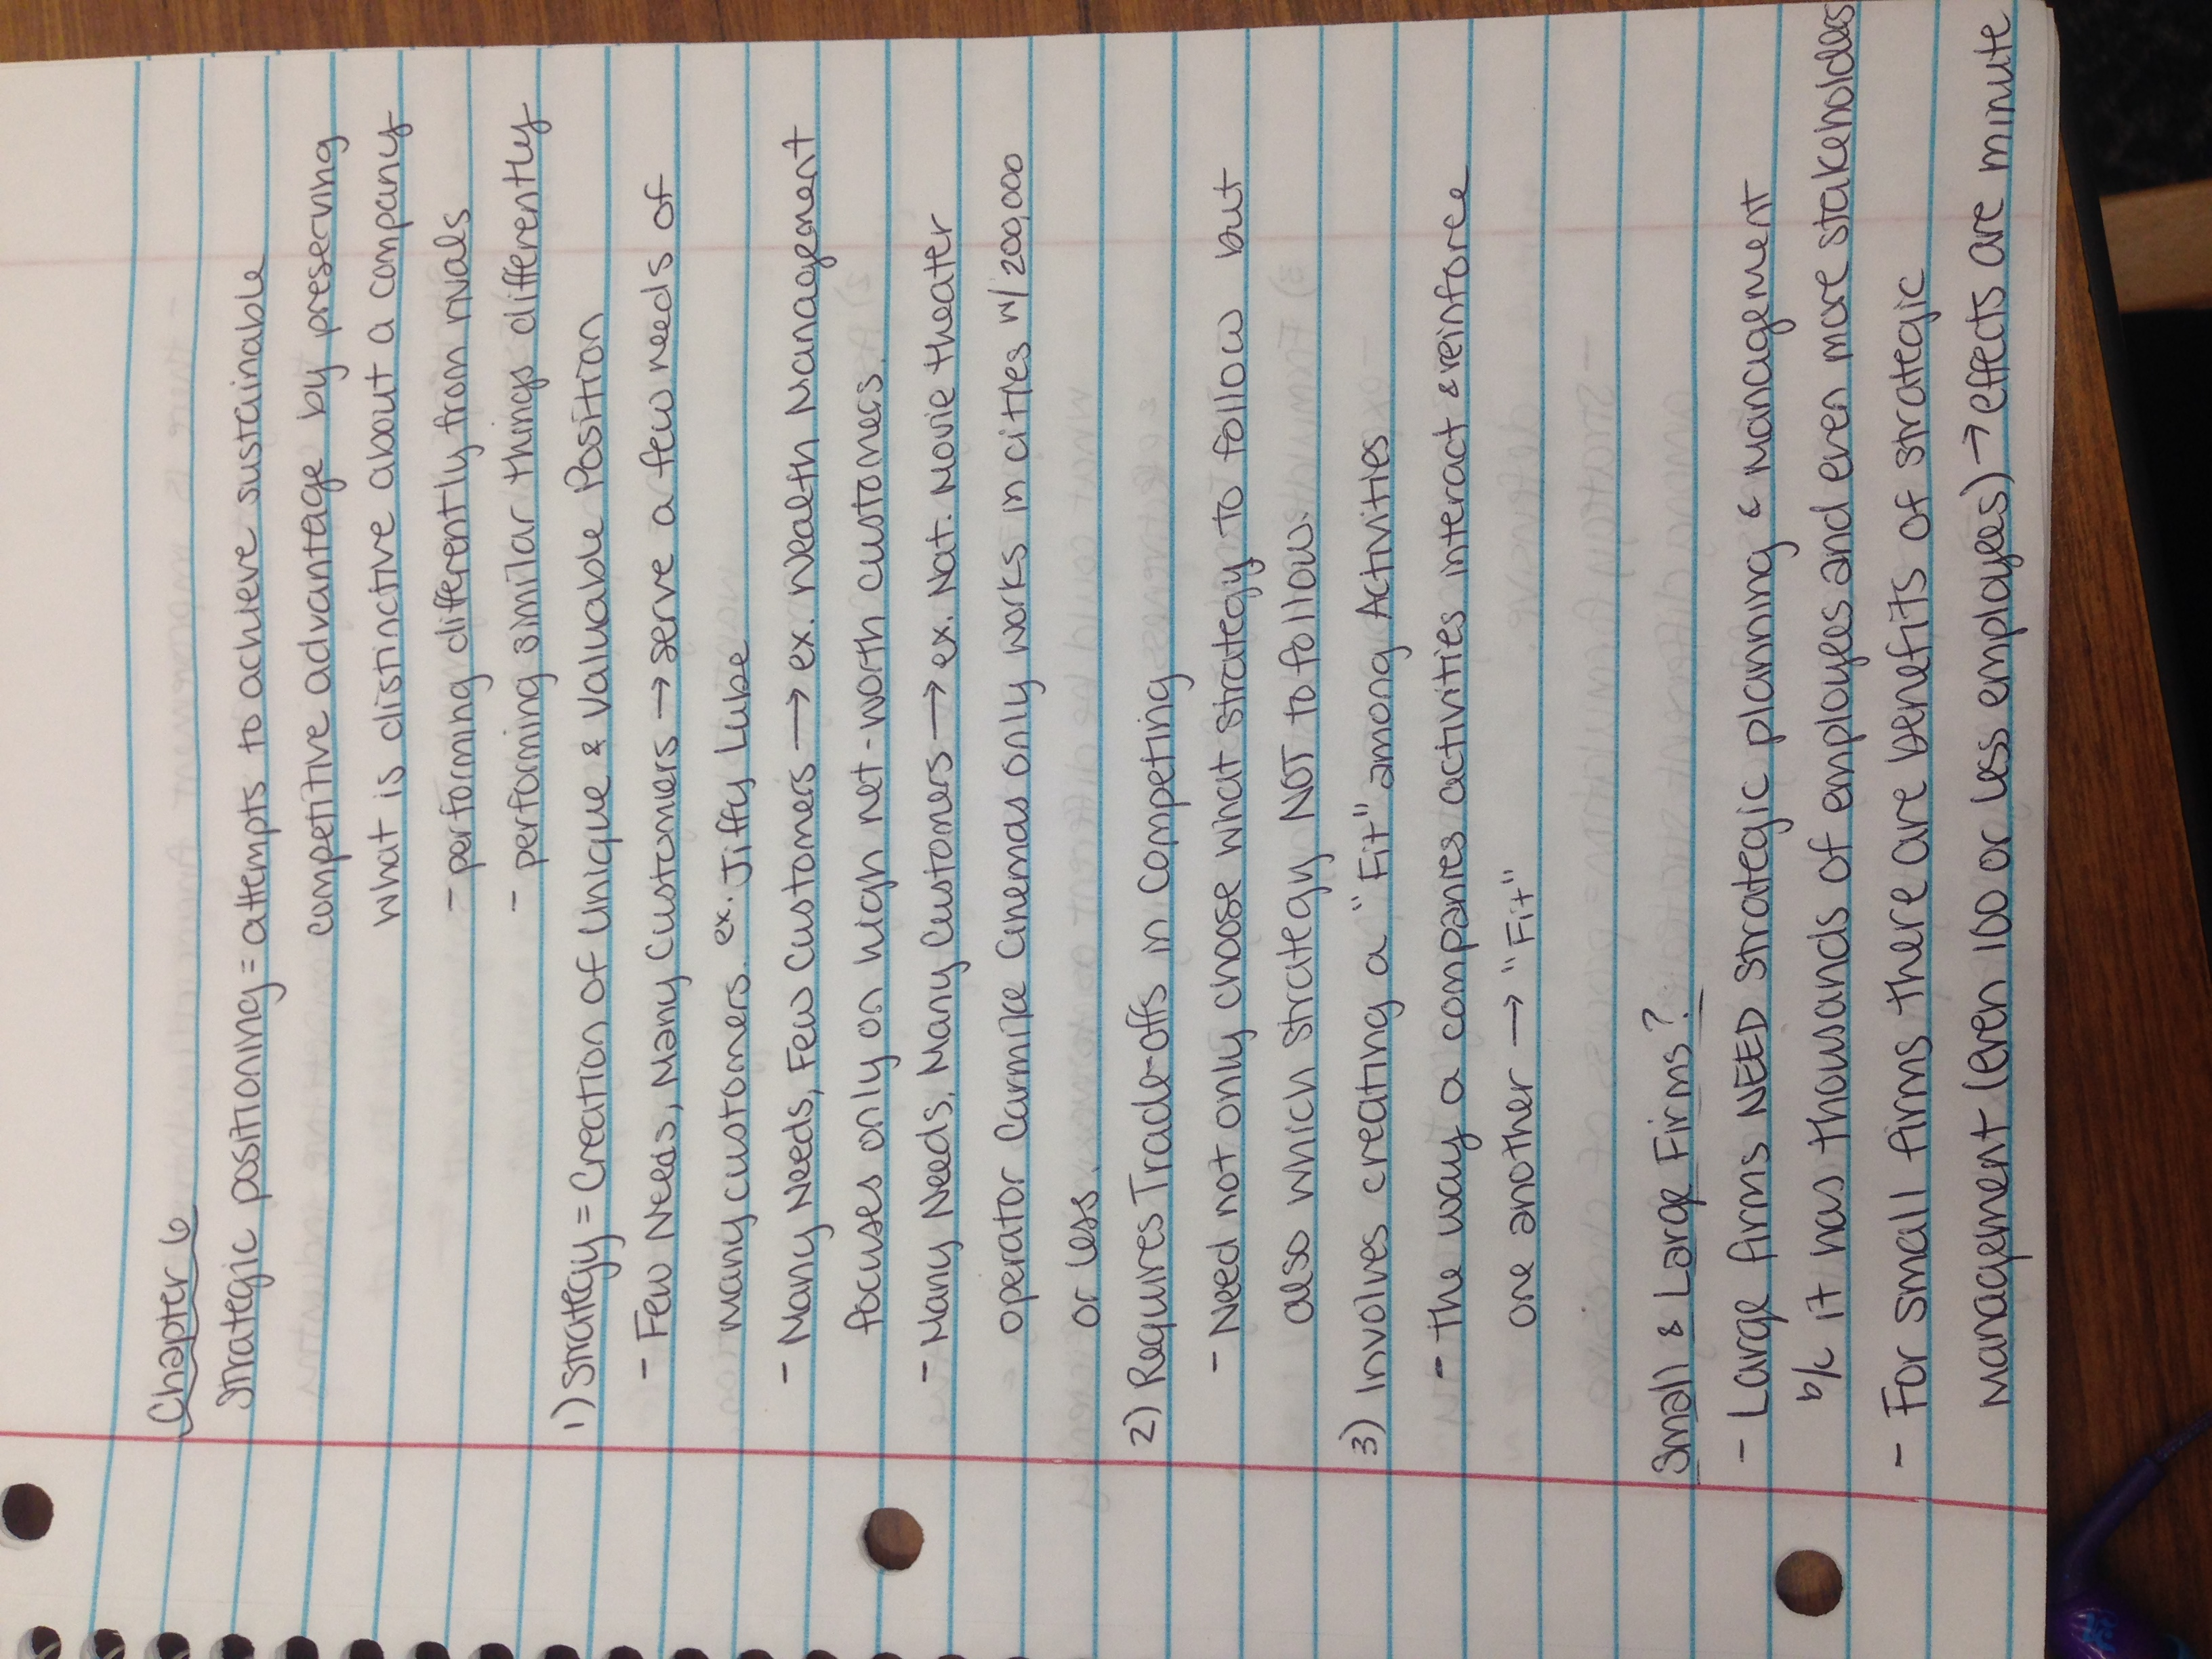 Chapter 6
Strategic positioning = attempts to achieve sustainable
competitive advantage by preserving
what is distinctive about a company
- performing differently from rivals
- performing similar things differently
1) Strategy = Creation of Unique & Valuable Position
- Few Needs, Many Customers → serve a few needs of
many customers. ex. Jiffy Lube
- Many Needs, Few Customers → ex. Wealth Management
focuses only on high net-worth customers.
- Many Needs, Many Customers → ex. Nat. Movie theater
operator Carmike Cinemas only works in cities w/ 200,000
or less
2) Requires Trade-offs in Competing
- Need not only choose what strategy to follow but
also which strategy NOT to follow.
3) Involves creating a "Fit" among Activities
- the way a companies activities interact & reinforce
one another → "Fit"
Small & Large Firms?
- Large firms NEED strategic planning & management
b/c it has thousands of employees and even more stakeholders
- For small firms there are benefits of strategic
management (even 100 or less employees) → effects are minute